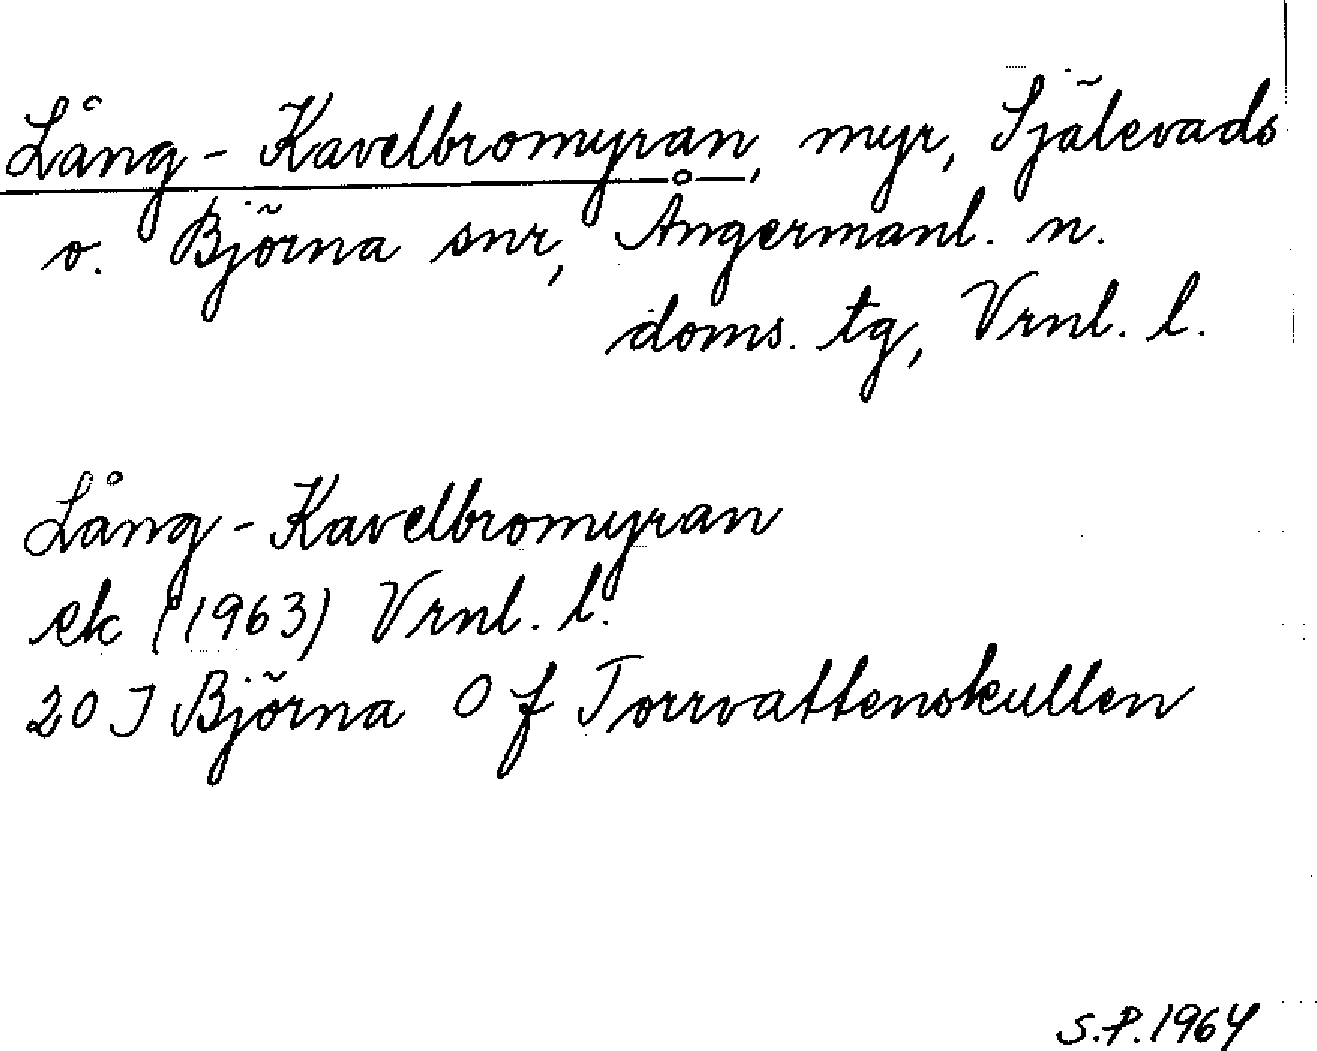 Lång-Kavelbromyran, myr, Själevads
o. Björna snr, Ångermanl. n.
doms. tg, Vrnl. l.
Lång-Kavelbromyran
ek (1963) Vrnl. l.
20 J Björna O f Torrvattenskullen
S.P. 1964